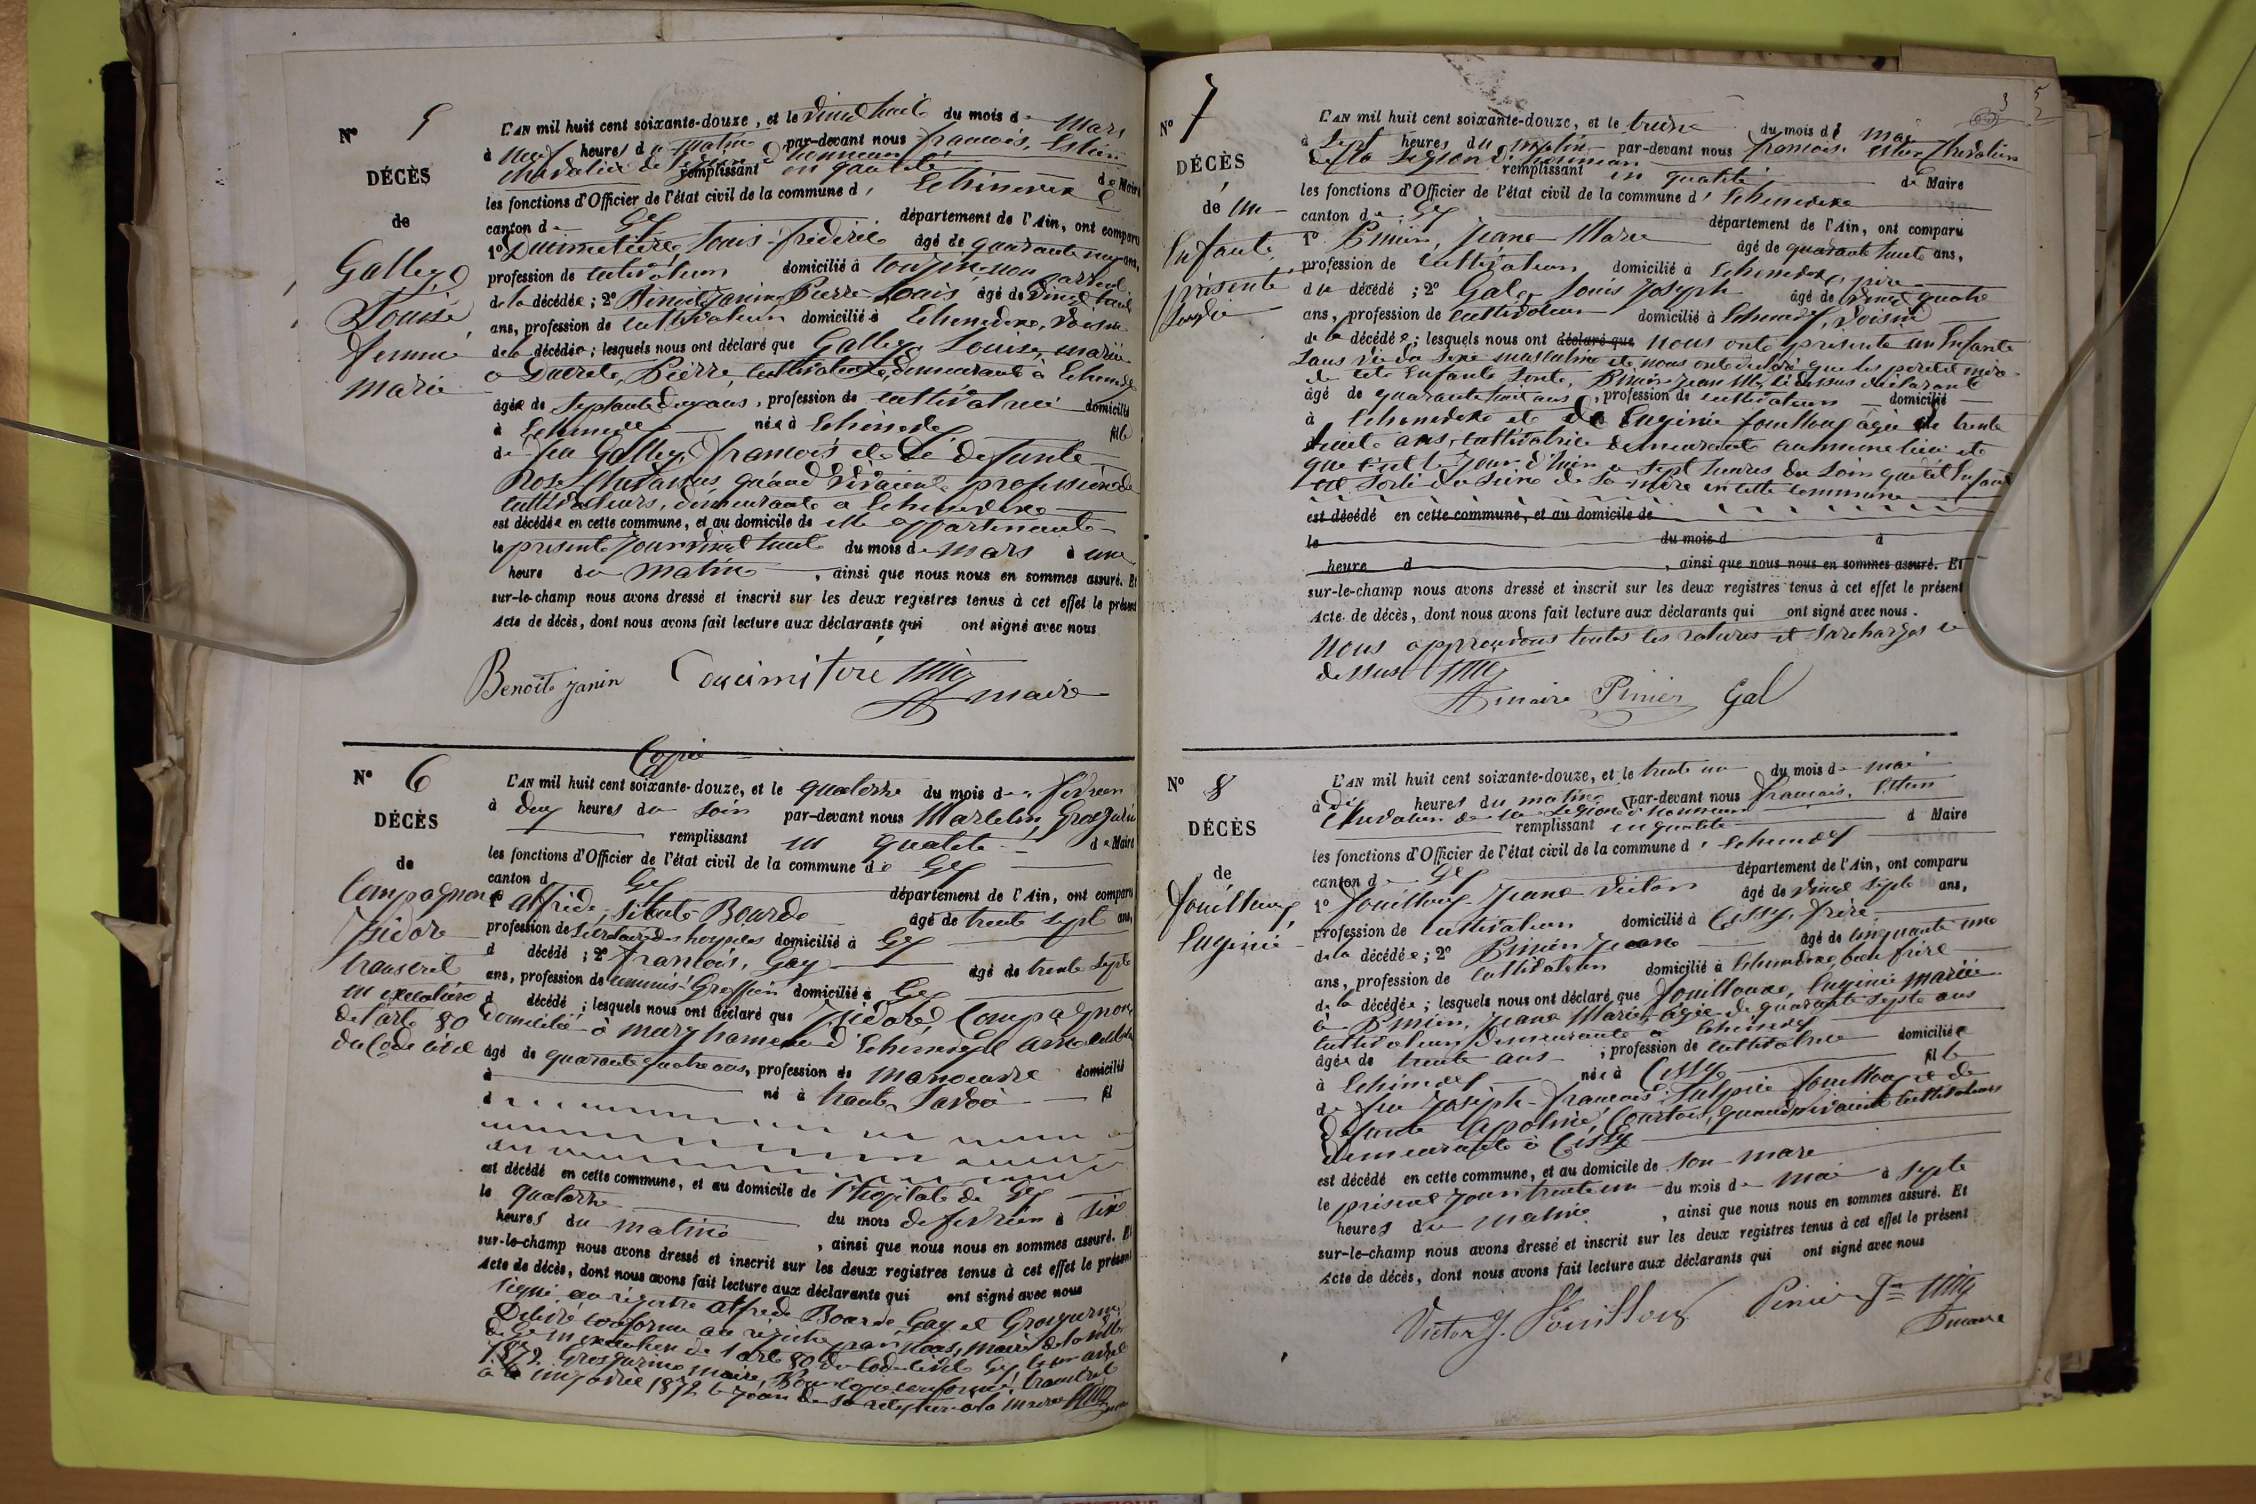 N° 5
DÉCÈS
de
Galley
Louise
femme
marié
L'AN mil huit cent soixante-douze, et le vingt huit du mois de Mars
à neuf heures du matin par-devant nous francois, Estier
chevalier de la Legion d'honneur remplissant en qualité de Maire
les fonctions d'Officier de l'état civil de la commune d' Echenevex
canton de Gex département de l'Ain, ont comparu
1° Ducimetière, Louis frédéric âgé de quarante neuf ans,
profession de cultivateur domicilié à
de la décédée ; 2° Benoit Janin Pierre Louis âgé de vingt huit
ans, profession de cultivateur domicilié à Echenevex, voisin
de la décédée ; lesquels nous ont déclaré que Galley Louise, mariée
a Ducret, Pierre, cultivateur, demeurant à Echenevex
âgée de Septante deux ans, profession de cultivatrice domicilié
à Echenevex née à Echenevex fille
de feu Galley, francois et de défunte
Rose Chavannes quand vivaient profession de
cultivateurs, demeurant a Echenevex
est décédée en cette commune, et au domicile de elle appartenant
le présent jour vingt huit du mois de Mars à une
heure du matin, ainsi que nous nous en sommes assuré. Et
sur-le-champ nous avons dressé et inscrit sur les deux registres tenus à cet effet le présent
Acte de décès, dont nous avons fait lecture aux déclarants qui ont signé avec nous
Benoit Janin Ducimitière
maire
Copie
N° 6
DÉCÈS
de
Compagnon
Isidore
transcrit
en execution
de l'art 80
du Code Civil
L'AN mil huit cent soixante-douze, et le quatorze du mois de fevrier
à deux heures du soir par-devant nous Marcelin, Grosgurin
remplissant en qualité de Maire
les fonctions d'Officier de l'état civil de la commune de Gex
canton d Gex département de l'Ain, ont comparu
1° alfred, Bourde âgé de trente sept ans,
profession de Secretaire des hospices domicilié à Gex
d décédé ; 2° francois, Gay âgé de trente sept
ans, profession de commis Greffier domicilié à Gex
d décédé ; lesquels nous ont déclaré que Isidore, Compagnon
domicilié à mury hameau d'Echenevex
âgé de quarante quatre ans, profession de manoeuvre domicilié
à né à haute Savoie fil
d
est décédé en cette commune, et au domicile de l'hopital de Gex
le quatorze du mois de fevrier à six
heures du matin, ainsi que nous nous en sommes assuré. Et
sur-le-champ nous avons dressé et inscrit sur les deux registres tenus à cet effet le présent
Acte de décès, dont nous avons fait lecture aux déclarants qui ont signé avec nous
signé au registre alfred Bourde, Gay et Grosgurin
Délivré conforme au registre par nous, maire de la ville
de Gex en execution de l'art 80 du Code Civil Gex
1872 Grosgurin maire, Pour copie conforme, transcrit
avril 1872 le jour de sa reception a la mairie
N° 7
DÉCÈS
de un
Enfant
présenté
Sans vie
3 5
2
L'AN mil huit cent soixante-douze, et le treize du mois de mai
à sept heures du matin par-devant nous francois Estier Chevalier
de la Legion d'honneur remplissant en qualité de Maire
les fonctions d'Officier de l'état civil de la commune d' Echenevex
canton de Gex département de l'Ain, ont comparu
1° Pinier, Jean Marie âgé de quarante huit ans,
profession de cultivateur domicilié à Echenevex, père
du décédé ; 2° Gal Louis Joseph âgé de vingt quatre
ans, profession de cultivateur domicilié à Echenevex, voisin
de la décédé ; lesquels nous ont déclaré que nous ont présenté un Enfant
Sans vie du sexe masculin et nous ont déclaré que les père et mère
de cet Enfant sont, Pinier Jean Mie ci dessus déclarant
âgé de quarante huit ans, profession de cultivateur domicilié
à Echenevex et de Eugénie fouilloux âgée de trente
huit ans, cultivatrice demeurant au même lieu et
que c'est le jour d'hier a sept heures du soir que cet Enfant
est sorti du sein de sa mère en cette commune
est décédé en cette commune, et au domicile de
le du mois d à
heure d, ainsi que nous nous en sommes assuré. Et
sur-le-champ nous avons dressé et inscrit sur les deux registres tenus à cet effet le présent
Acte de décès, dont nous avons fait lecture aux déclarants qui ont signé avec nous.
Nous approuvons toutes les ratures et surcharges ci
dessus
maire Pinier Gal
N° 8
DÉCÈS
de
fouilloux,
Eugénie
L'AN mil huit cent soixante-douze, et le trente un du mois de mai
à dix heures du matin par-devant nous francois, Estier
Chevalier de la Legion d'honneur remplissant en qualité d Maire
les fonctions d'Officier de l'état civil de la commune d' Echenevex
canton de Gex département de l'Ain, ont comparu
1° fouilloux Jean Victor âgé de vingt sept ans,
profession de cultivateur domicilié à Cessy, frère
de la décédée ; 2° Pinier Jean âgé de cinquante un
ans, profession de cultivateur domicilié à Echenevex, beau frère
de la décédée ; lesquels nous ont déclaré que fouilloux, Eugénie mariée
à Pinier, Jean Marie, âgé de quarante sept ans
cultivateur demeurant à Echenevex
âgée de trente ans ; profession de cultivatrice domiciliée
à Echenevex née à Cessy fille
de feu Joseph francois Sulpice fouilloux et de
défunte Apoline, Courtois, quand vivaient cultivateurs
demeurant à Cessy
est décédé en cette commune, et au domicile de son mari
le présent jour trente un du mois de mai à sept
heures du matin, ainsi que nous nous en sommes assuré. Et
sur-le-champ nous avons dressé et inscrit sur les deux registres tenus à cet effet le présent
Acte de décès, dont nous avons fait lecture aux déclarants qui ont signé avec nous
Victor J. Fouilloux Pinier Jn
maire